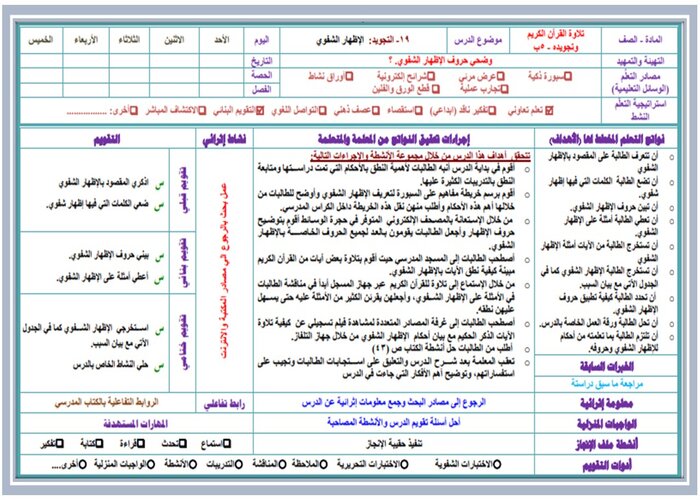 المادة - الصف
تلاوة القرآن الكريم وتجويده - ٥ب
موضوع الدرس
١٩- التجويد: الإظهار الشفوي
اليوم
الأحد
الاثنين
الثلاثاء
الأربعاء
الخميس
التهيئة والتمهيد
وضحي حروف الإظهار الشفوي. ؟
التاريخ
مصادر التعلم
(الوسائل التعليمية)
سبورة ذكية
عرض مرئي
شرائح إلكترونية
أوراق نشاط
تجارب عملية
قطع الورق والفلين
الحصة
الفصل
استراتيجية التعلم النشط
تعلم تعاوني
تفكير ناقد (ابداعي)
استقصاء
عصف ذهني
التواصل اللغوي
التقويم البنائي
الاكتشاف المباشر
أخرى: ................
نواتج التعلم المخطط لها (الأهداف)
إجراءات تحقيق النواتج من المعلمة والمتعلمة
نشاط إثرائي
التقويم
أن تتعرف الطالبة على المقصود بالإظهار الشفوي
أن تضع الطالبة الكلمات التي فيها إظهار شفوي
أن تبين حروف الإظهار الشفوي.
أن تعطي الطالبة أمثلة على الإظهار الشفوي.
أن تستخرج الطالبة من الآيات أمثلة الإظهار الشفوي
أن تستخرج الإظهار الشفوي كما في الجدول الآتي مع بيان السبب.
أن تحدد الطالبة كيفية تطبيق حروف الإظهار الشفوي.
أن تحل الطالبة ورقة العمل الخاصة بالدرس.
أن تلتزم الطالبة بما تعلمته من أحكام للإظهار الشفوي وحروفه.
الخبرات السابقة
مراجعة ما سبق دراستة
تتحقق أهداف هذا الدرس من خلال مجموعة الأنشطة والإجراءات التالية:
أقوم في بداية الدرس أنبه الطالبات لأهمية النطق بالأحكام التي تمت دراستها ومتابعة النطق بالتدريبات الكثيرة عليها.
أقوم برسم خريطة مفاهيم على السبورة لتعريف الإظهار الشفوي وأوضح للطالبات من خلالها أهم هذه الأحكام وأطلب منهن نقل هذه الخريطة داخل الكراس المدرسي.
من خلال الإستعانة بالمصحف الإلكتروني المتوفر في حجرة الوسائط أقوم بتوضيح حروف الإظهار وأجعل الطالبات يقومون بالعد لجميع الحروف الخاصة بالإظهار الشفوي.
أصطحب الطالبات إلى المسجد المدرسي حيث أقوم بتلاوة بعض آيات من القرآن الكريم مبينة كيفية نطق الآيات بالإظهار الشفوي.
من خلال الإستماع إلى تلاوة للقرآن الكريم عبر جهاز المسجل أبدأ في مناقشة الطالبات في الأمثلة على الإظهار الشفوي، وأجعلهن يقرنن الكثير من الأمثلة عليه حتى يسهل عليهن نطقه.
أصطحب الطالبات إلى غرفة المصادر المتعددة لمشاهدة فيلم تسجيلي عن كيفية تلاوة الآيات الذكر الحكيم مع بيان أحكام الإظهار الشفوي من خلال جهاز التلفاز.
أطلب من الطالبات حل أنشطة الكتاب ص (٤٣)
تعقب المعلمة بعد شرح الدرس والتعليق على استجابات الطالبات وتجيب على استفساراتهم، وتوضيح أهم الأفكار التي جاءت في الدرس
عمل بحث بالرجوع الى مصادر المكتبة والانترنت
تقويم قبلي
اذكري المقصود بالإظهار الشفوي
ضعي الكلمات التي فيها إظهار شفوي
تقويم بنائي
بيني حروف الإظهار الشفوي.
أعطي أمثلة على الإظهار الشفوي.
تقويم ختامي
استخرجي الإظهار الشفوي كما في الجدول الآتي مع بيان السبب.
حلي النشاط الخاص بالدرس
معلومة إثرائية
الرجوع إلى مصادر البحث وجمع معلومات إثرائية عن الدرس
رابط تفاعلي
الروابط التفاعلية بالكتاب المدرسي
الواجبات المنزلية
أحل أسئلة تقويم الدرس والأنشطة المصاحبة
المهارات المستهدفة
أنشطة ملف الإنجاز
تنفيذ حقيبة الإنجاز
استماع
تحدث
قراءة
كتابة
تفكير
أدوات التقويم
الاختبارات الشفوية
الاختبارات التحريرية
الملاحظة
المناقشة
التدريبات
الأنشطة
الواجبات المنزلية
أخرى....